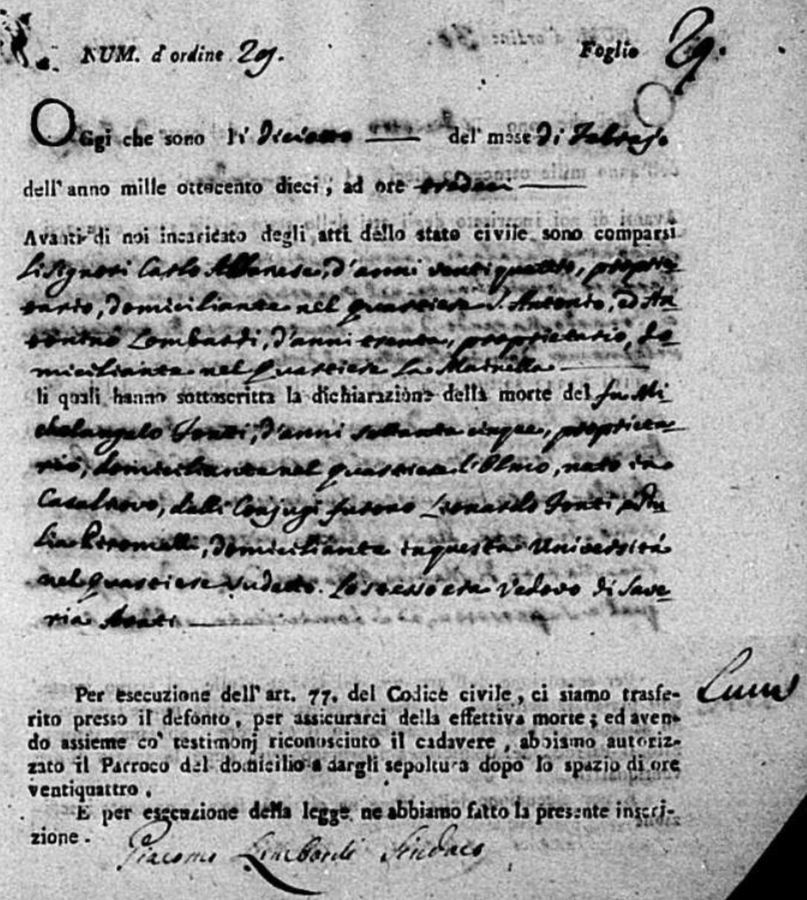 NUM. d'ordine 29. Foglio 29.
OGgi che sono li diciotto del mese di Febrajo
dell'anno mille ottocento dieci, ad ore tredeci
Avanti di noi incaricato degli atti dello stato civile sono comparsi
li Signori Carlo Albanese, d'anni ventiquattro, proprie-
tario, domiciliante nel quartiere S. Antonio, ed An-
tonino Lombardi, d'anni trenta, proprietario, do-
miciliante nel quartiere La
li quali hanno sottoscritta la dichiarazione della morte del fu Mi-
chelangelo Fonti, d'anni settanta cinque, proprieta-
rio, domiciliante nel quartiere l'Olmo, nato in
Casalnovo, dalli Conjugi furono Leonardo Fonti, e Giu-
lia, domiciliante in questa Università
nel quartiere sudetto. Lo stesso era Vedovo di Save-
ria
Per esecuzione dell'art. 77. del Codice civile, ci siamo trasfe-
rito presso il defonto, per assicurarci della effettiva morte; ed aven-
do assieme co' testimonj riconosciuto il cadavere, abbiamo autoriz-
zato il Parroco del domicilio a dargli sepoltura dopo lo spazio di ore
ventiquattro.
E per esecuzione della legge ne abbiamo fatto la presente inscri-
zione.
Giacomo Lombardi Sindaco